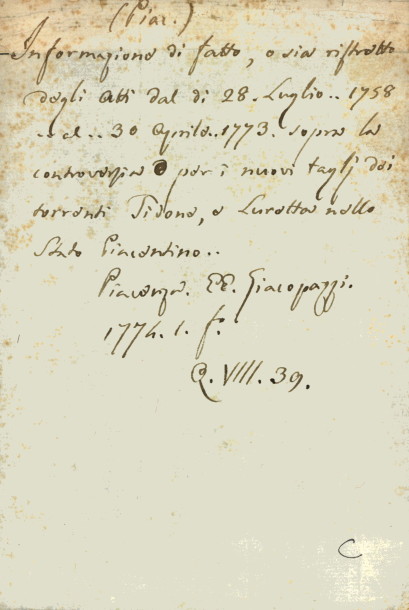 (Piac.)
Informazione di fatto, o sia ristretto
degli Atti dal di 28. Luglio.. 1758
.. al .. 30 Aprile.. 1773. sopra la
controversia per i nuovi taglj dei
torrenti Tidone, e Luretta nello
Stato Piacentino..
Piacenza. EE. Giacopazzi.
1774. 1. f.
Q. VIII. 39.
C